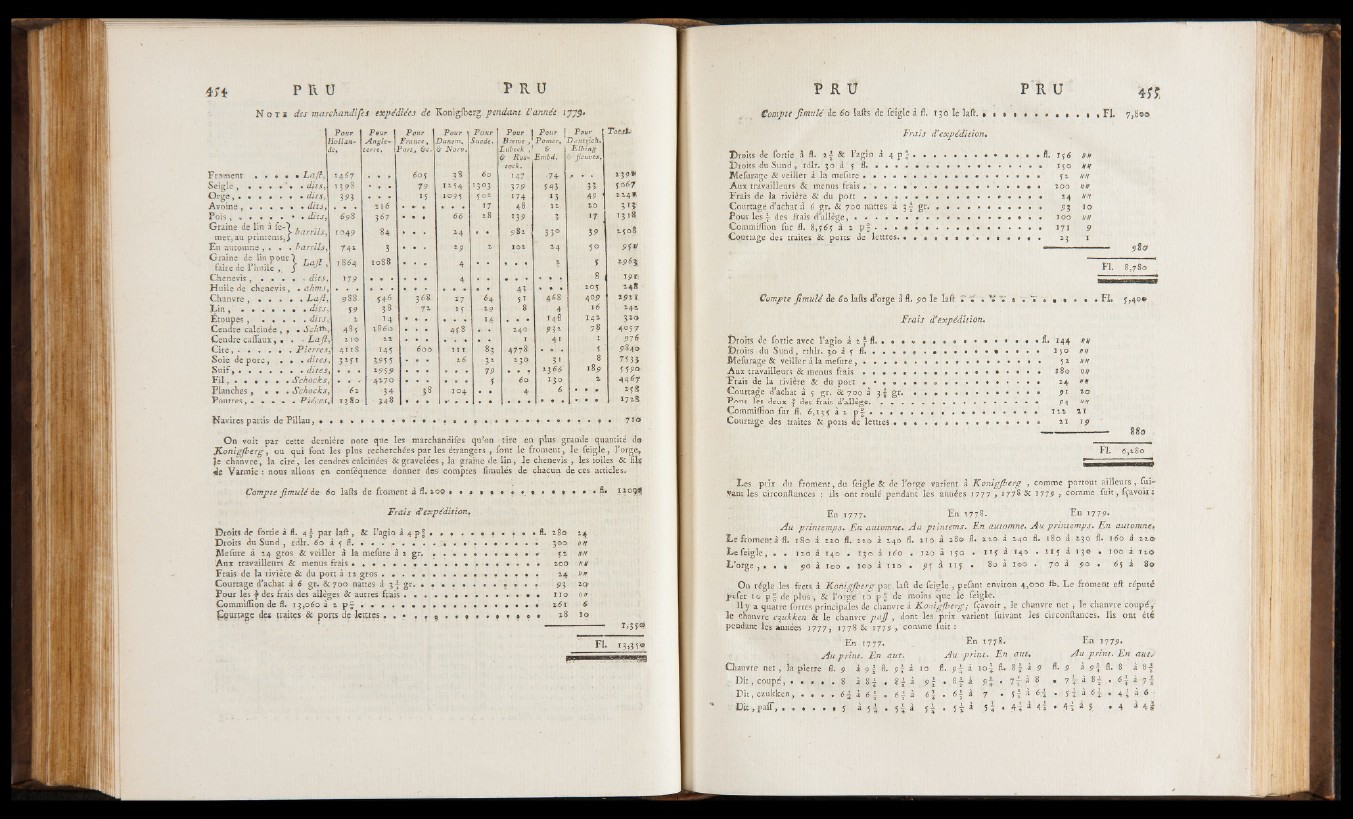 454 PRU PRU
NOTE des marchandiſes expédiées de Konigſberg pendant l'année 1779.
Pour Hollande, Pour Angleterre, Pour France, Port, &c. Pour Danem. & Norv. Pour Suede. Pour Breme, Lubeck, & Roſtock. Pour Pomer. & Embd. Pour Dantzich, Elbing Total.
Froment . . . . . Laſt, 2467 . . . 605 38 60 147 74 . . .
Seigle, . . . . . . dits, 1398 . . . 79 1254 1303 379 543 33 5067
Orge, . . . . . . . dits, 393 . . . 15 1095 502 174 13 49
Avoine, . . . . . . dits, . . . 216 . . . . . . 17 48 12 20 313
Pois, . . . . . . . dits, 698 367 . . . 66 28 139 3 17 1318
Graine de lin à ſemer, au printems, barrils, 1049 84 . . . 24 . . 982 330 39 2508
En automne, . . . barrils, 742 3 . . . 29 2 102 24 50
Graine de lin pour faire de l'huile, Laſt, 1864 1088 . . . 4 . . . . . 2 5 2963
Chenevis, . . . . . dits, 179 . . . . . . 4 . . . . . . . . 8 191
Huile de chenevis, . ahms, . . . . . . . . . . . . . . 43 . . . 205 248
Chanvre, . . . . . Laſt, 988 546 368 27 64 51 468 409 2921
Lin, . . . . . . . dits, 59 38 72 25 29 8 4 16 242
Etoupes, . . . . . dits, 2 14 . . . . . . 14 . . . 148 142 320
Cendre calcinée, , . Schth, 485 1860 . . . 458 . . 240 932 78 4057
Cendre caſſaux, . . . Laſt, 210 22 . . . . . . . . 1 41 1 976
Cire, . . . . . . Pierres, 4118 145 600 111 83 4778 . . . 5 9840
Soie de porc, . . . dites, 3251 3955 . . . 26 32 230 31 8 7533
Suif, . . . . . . . dites, . . . 2959 . . . . . . 79 . . . 2366 189 5590
Fil, . . . . . . Schocks, . . . 4270 . . . . . . 5 60 130 2 4467
Planches, . . . Schocks, 62 34 38 104 . . 4 6 . . . 258
Poutres, . . . . . Piéces, 1380 348 . . . . . . . . . . . . . . . . . 1728
Navires partis de Pillau, . . . . . . . . . . . . . . . . . . . . 710
On voit par cette derniére note que les marchandiſes qu'on tire en plus grande quantité de
Konigſberg, ou qui ſont les plus recherchées par les étrangers, ſont le froment, le ſeigle, l'orge,
le chanvre, la cire, les cendres calcinées & gravelées, la graine de lin, le chenevis, les toiles & fils
de Varmie : nous allons en conſéquence donner des comptes ſimulés de chacun de ces articles.
Compte ſimulé de 60 laſts de froment à fl. 200 . . . . . . . . . . . . . fl.
Frais d'expédition.
Droits de ſortie à fl. 4½ par laſt, & l'agio à 4 p% . . . . . . . . fl. 280 24
Droits du Sund, rdlr. 60 à 5 fl. . . . . . . . . . . . . . . 300 ""
Meſure à 24 gros & veiller à la meſure à 2 gr. . . . . . . . . . 52 ""
Aux travailleurs & menus frais . . . . . . . . . . . . . . . 200 ""
Frais de la rivière & du port à 12 gros . . . . . . . . . . . . 24 ""
Courtage d'achat à 6 gr. & 700 nattes à 3½ gr. . . . . . . . . . 93 20
Pour les ⅔ des frais des allèges & autres frais . . . . . . . . . . 110 ""
Commiſſion de fl. 13,060 à 2 p% . . . . . . . . . . . . . . 261 6
Courtage des traites & ports de lettres . . . . . . . . . . . . 28 10
1,350
Fl. 13,350
PRU PRU 455
Compte ſimulé de 60 laſts de ſeigle à fl. 130 le laſt. . . . . . . . . . . Fl. 7,800
Frais d'expédition.
Droits de ſortie à fl. 2½ & l'agio à 4 p% . . . . . . . . . . . fl. 156 ""
Droits du Sund, rdlr. 30 à 5 fl. . . . . . . . . . . . . . . 150 ""
Meſurage & veiller à la meſure . . . . . . . . . . . . . . . 52 ""
Aux travailleurs & menus frais . . . . . . . . . . . . . . . 200 ""
Frais de la rivière & du port . . . . . . . . . . . . . . . . 24 ""
Courtage d'achat à 6 gr. & 700 nattes à 3½ gr. . . . . . . . . . 93 10
Pous les des frais d'allège, . . . . . . . . . . . . . . . . 100 ""
Commiſſion ſur fl. 8,565 à 2 p% . . . . . . . . . . . . . . 171 9
Courtage des traites & ports de lettres. . . . . . . . . . . . . 23 1
980
Fl. 8,780
Compte ſimulé de 60 laſts d'orge à fl. 90 le laſt . . . . . . . . . . . Fl. 5,400
Frais d'expédition.
Droits de ſortie avec l'agio à fl. . . . . . . . . . . . . . fl. 144 ""
Droits du Sund, rthlr. 30 à 5 fl. . . . . . . . . . . . . . . 150 ""
Meſurage & veiller à la meſure, . . . . . . . . . . . . . . . 52 ""
Aux travailleurs & menus frais . . . . . . . . . . . . . . . 280 ""
Frais de la rivière & du port . . . . . . . . . . . . . . . . 24 ""
Courtage d'achat à 5 gr. & 700 à 3½ gr. . . . . . . . . . . . . 91 20
Pour les deux des frais d'allège. . . . . . . . . . . . . . . 94 ""
Commiſſion ſur fl. 6,135 à 2 p% . . . . . . . . . . . . . . 122 21
Courtage des traites & ports de lettres . . . . . . . . . . . . . 21 19
880
Fl. 6,280
Les prix du froment, du ſeigle & de l'orge varient à Konigſberg, comme partout ailleurs, ſuivant les circonſtances : ils ont roulé pendant les années 1777, 1778 & 1779, comme ſuit, ſçavoir :
En 1777. En 1778. En 1779.
Au printemps. En automne. Au printems. En automne. Au printemps. En automne.
Le froment à fl. 180 à 220 fl. 220 à 240 fl. 210 à 280 fl. 220 à 240 fl. 180 à 230 fl. 160 à 220
Le ſeigle, . . 120 à 140 . 130 à 160 . 120 à 150 . 115 à 140 . 115 à 130 . 100 à 120
L'orge, . . . 90 à 100 . 100 à 110 . 95 à 115 . 80 à 100 . 70 à 90 . 65 à 80
On régle les frets à Konigſberg par laſt de ſeigle, peſant environ 4,000 lb. Le froment eſt réputé
peſer 10 p% de plus, & l'orge 10 p% de moins que le ſeigle.
Il y a quatre ſortes principales de chanvre à Konigſberg; ſçavoir, le chanvre net, le chanvre coupé,
le chanvre czukken & le chanvre paſſ, dont les prix varient ſuivant les circonſtances. Ils ont été
pendant les années 1777, 1778 & 1779, comme ſuit :
En 1777. En 1778. En 1779.
Au print. En aut. Au print. En aut. Au print. En aut.
Chanvre net, la pierre fl. 9 à 9½ fl. 9½ à 10 fl. 9½ à 10½ fl. 8½ à 9 fl. 9 à 9½ fl. 8 à
Dit, coupé, . . . . . 8 à 8½ . 8½ à . à . 7½ à 8 . à . à
Dit, czukken, . . . . à . à . à 7 . à . à . à 6
Dit, paſſ, . . . . . . 5 à . à . à . à . à 5 . 4 à